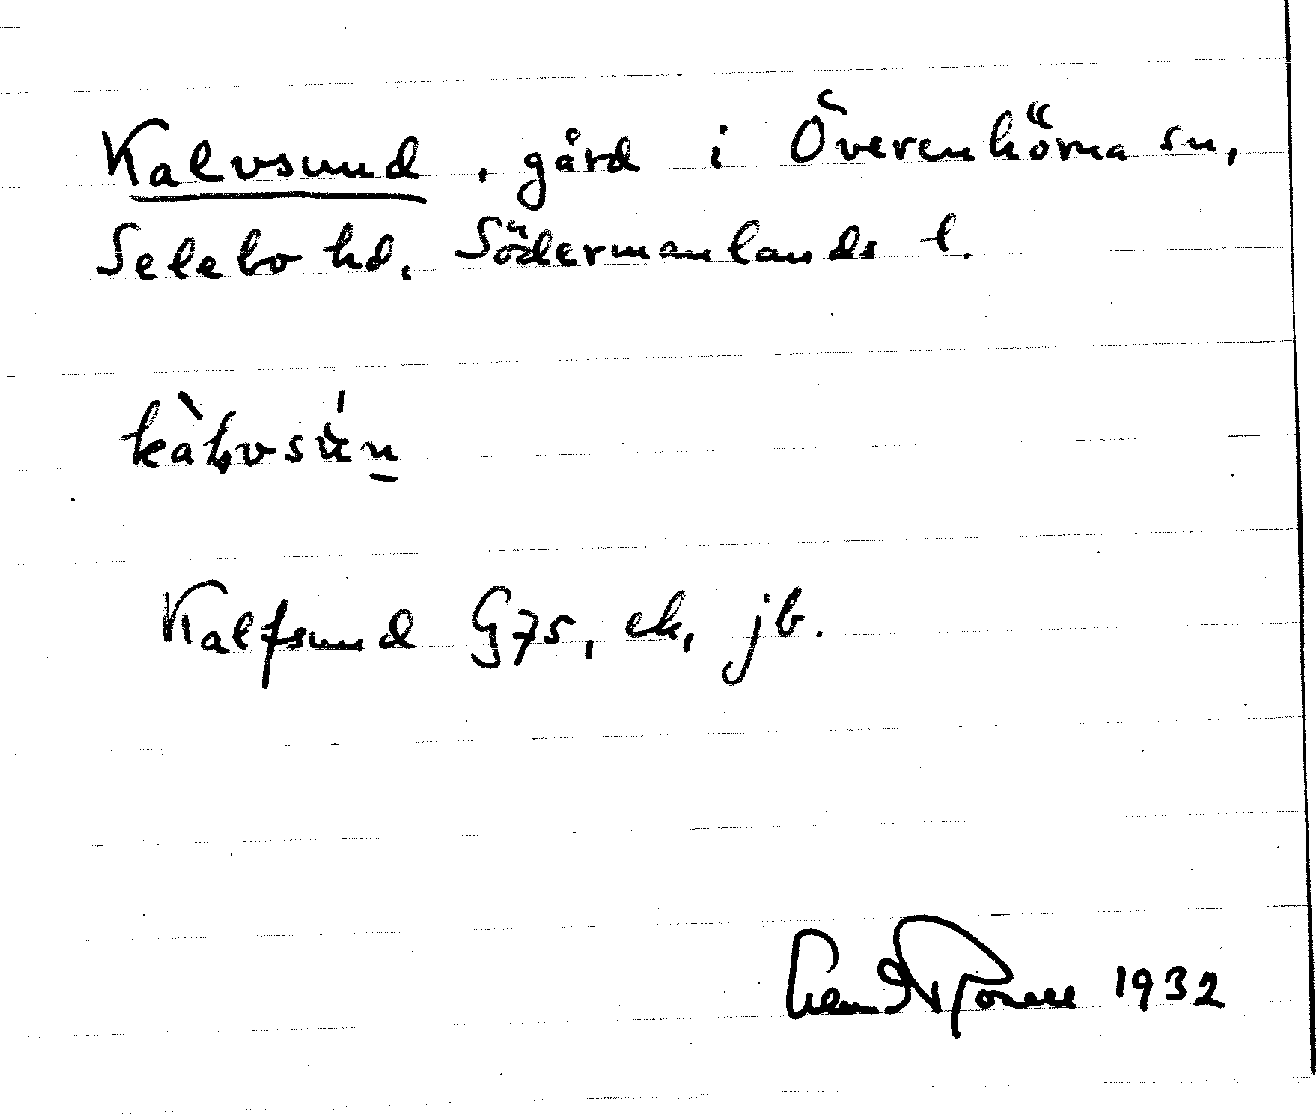 Kalvsund, gård i Överenhörna sn,
Selebo hd, Södermanlands l.
Kalfsund G75, ek, jb.
1932